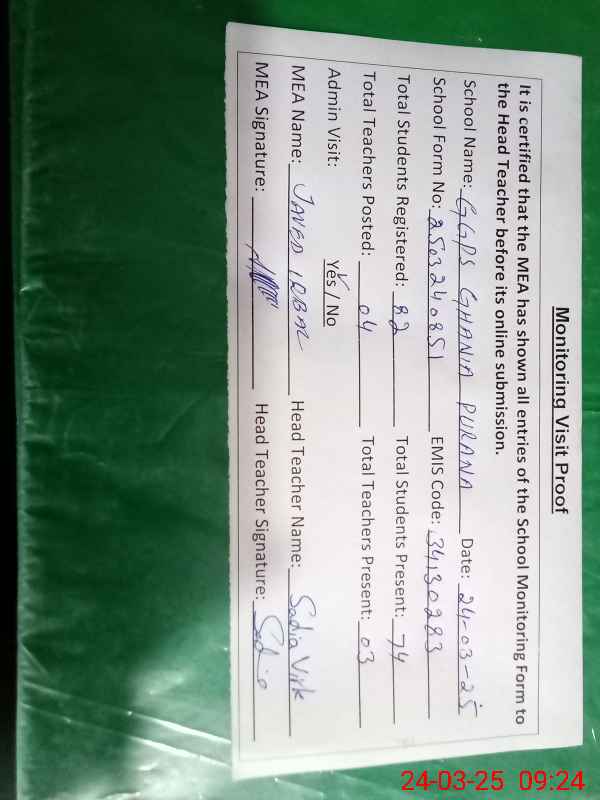 Monitoring Visit Proof
It is certified that the MEA has shown all entries of the School Monitoring Form to
the Head Teacher before its online submission.
School Name: GGPS GHANIA PURANA Date: 24-03-25
School Form No: 2503240851 EMIS Code: 34130283
Total Students Registered: 82 Total Students Present: 74
Total Teachers Posted: 04 Total Teachers Present: 03
Admin Visit: Yes / No
MEA Name: JAVED IQBAL Head Teacher Name: Sadia Virk
MEA Signature: Head Teacher Signature: Sadia
24-03-25 09:24